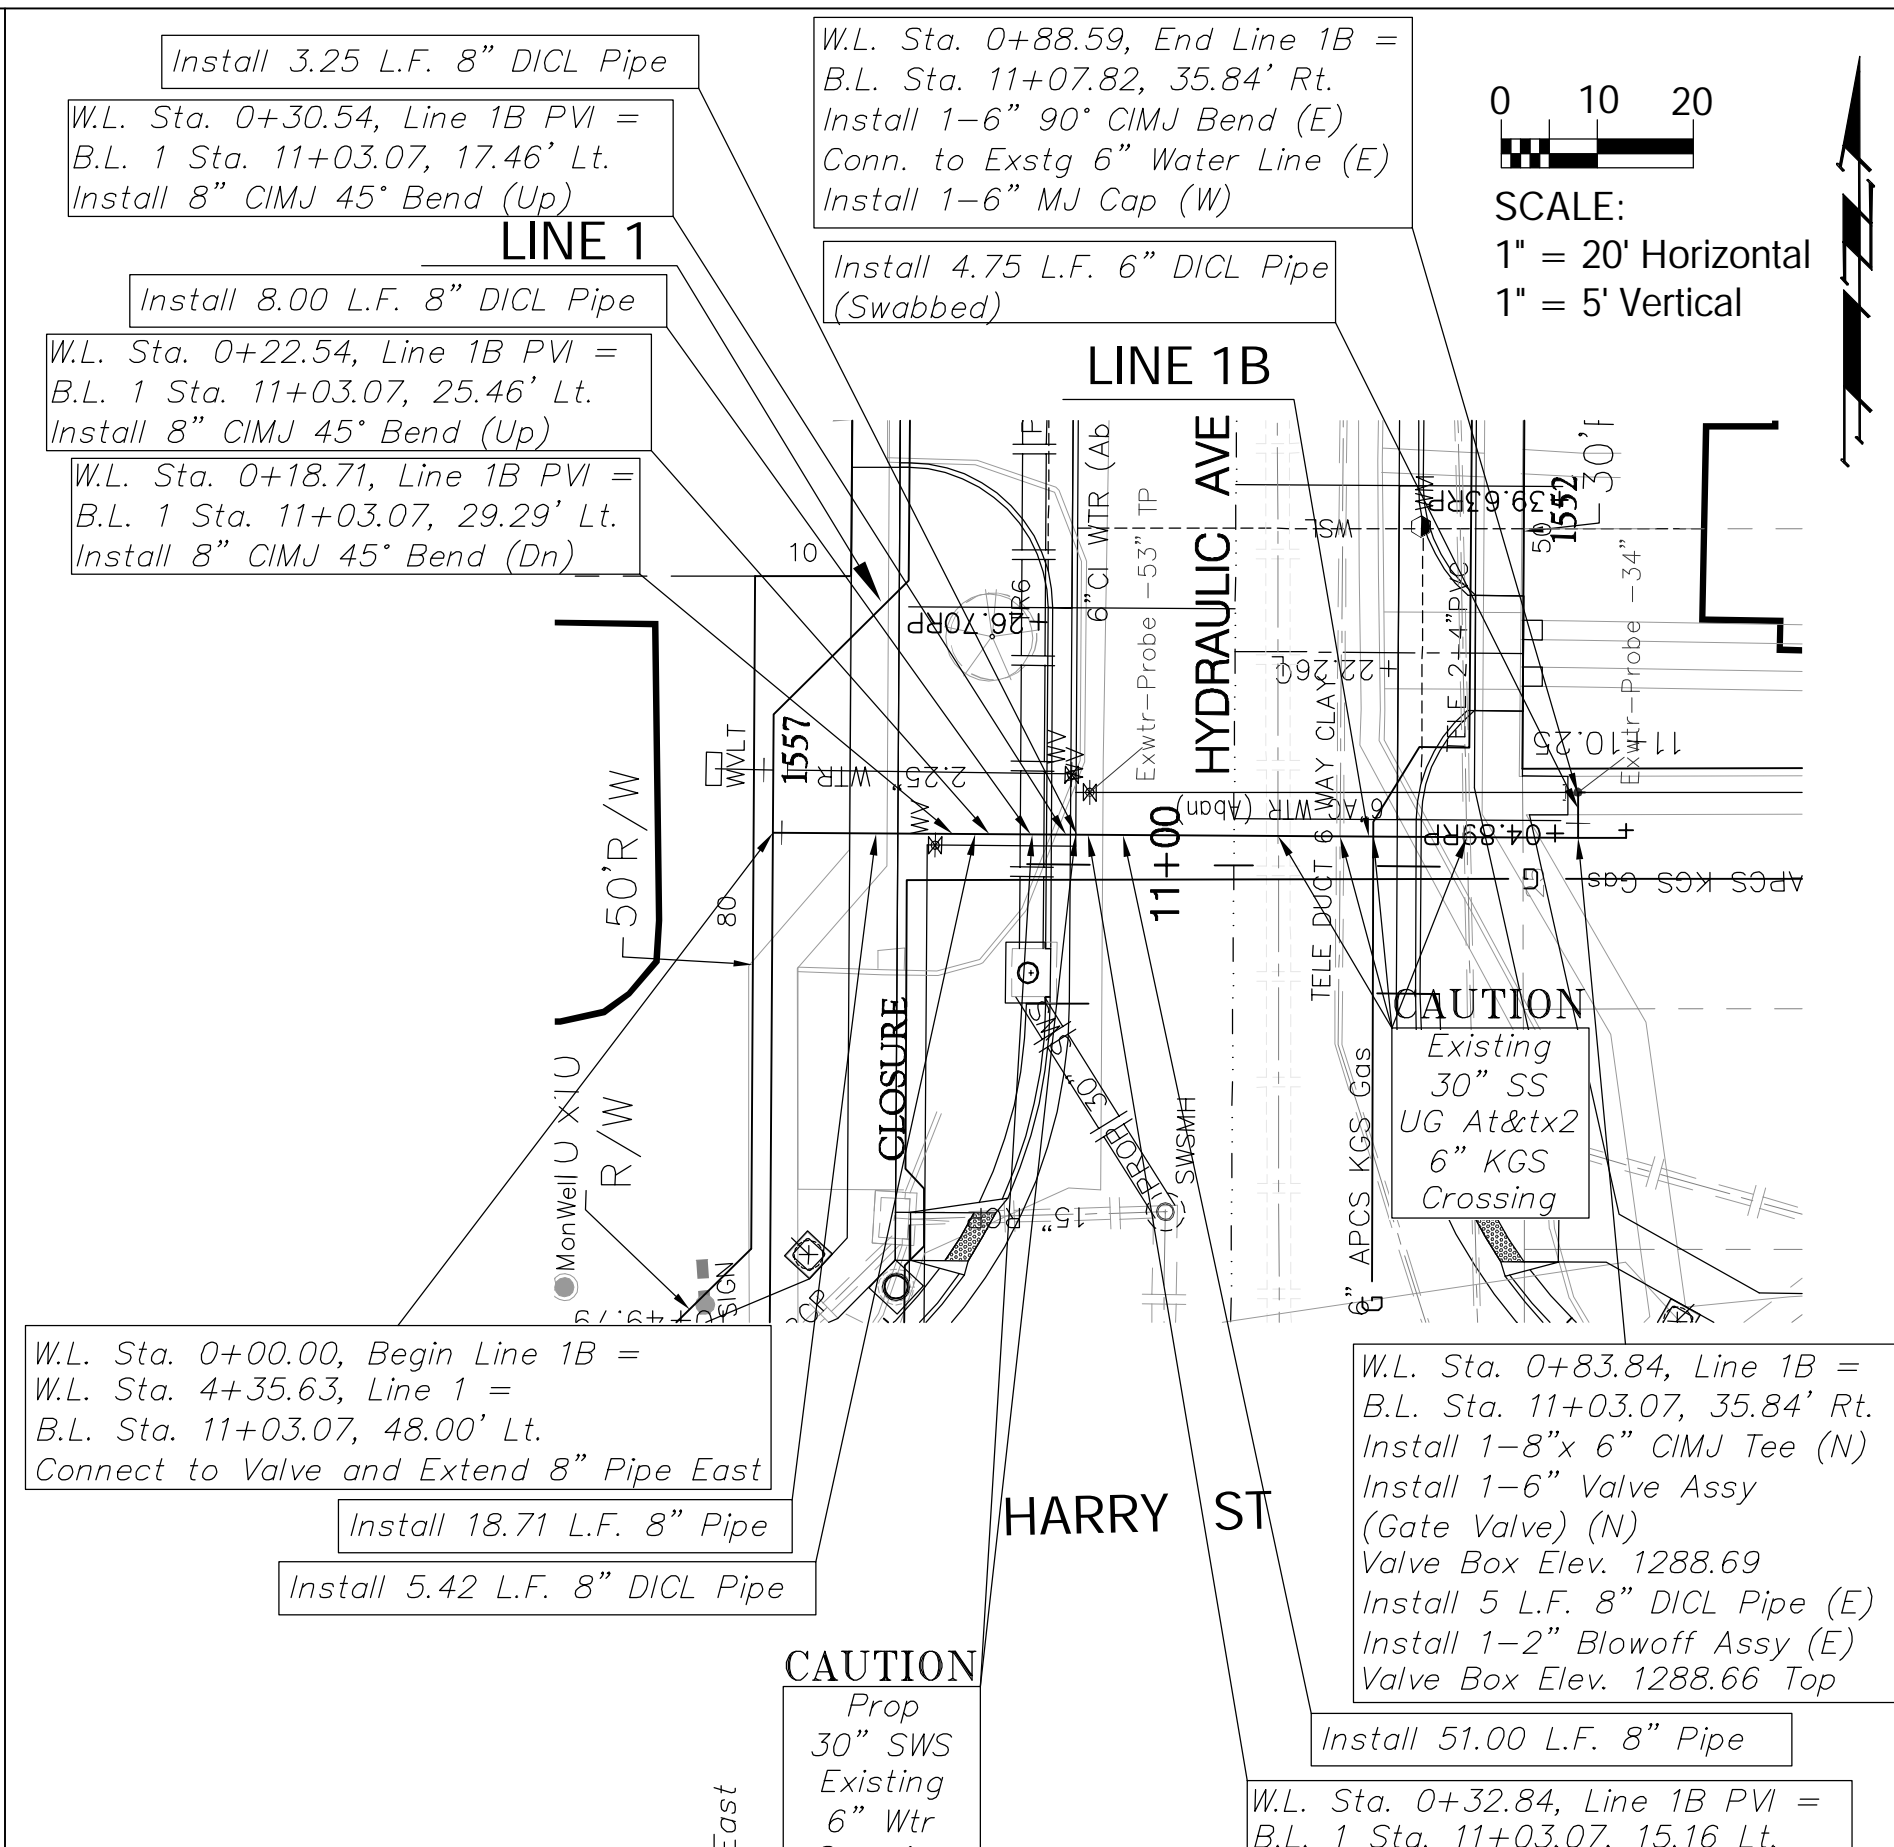 Install 3.25 L.F. 8” DICL Pipe
W.L. Sta. 0+30.54, Line 1B PVI =
B.L. 1 Sta. 11+03.07, 17.46’ Lt.
Install 8” CIMJ 45° Bend (Up)
LINE 1
Install 8.00 L.F. 8” DICL Pipe
W.L. Sta. 0+22.54, Line 1B PVI =
B.L. 1 Sta. 11+03.07, 25.46’ Lt.
Install 8” CIMJ 45° Bend (Up)
W.L. Sta. 0+18.71, Line 1B PVI =
B.L. 1 Sta. 11+03.07, 29.29’ Lt.
Install 8” CIMJ 45° Bend (Dn)
W.L. Sta. 0+88.59, End Line 1B =
B.L. Sta. 11+07.82, 35.84’ Rt.
Install 1-6” 90° CIMJ Bend (E)
Conn. to Exstg 6” Water Line (E)
Install 1-6” MJ Cap (W)
Install 4.75 L.F. 6” DICL Pipe
(Swabbed)
0 10 20
SCALE:
1" = 20' Horizontal
1" = 5' Vertical
LINE 1B
HYDRAULIC AVE
6”CI WTR (Ab
Exwtr-Probe -53” TP
WSL
WM
+39.63RP
1552
50
30'
Exwtr-Probe -34”
10
R6
+26.70RP
+22.26C
TELE 2-4”PVC
11+10.25
WVLT
1557
2.25” WTR
WV
WV
WV
6”AC WTR (Aban)
11+00
+04.89RP
G
APCS KGS Gas
50’R/W
80
TELE DUCT 6 WAY CLAY
CLOSURE
SWS
30”
PROP
SWSMH
15” RCP
6” APCS KGS Gas
G
CAUTION
Existing
30” SS
UG At&tx2
6” KGS
Crossing
MonWell
R/W
SIGN
+49.79
W.L. Sta. 0+00.00, Begin Line 1B =
W.L. Sta. 4+35.63, Line 1 =
B.L. Sta. 11+03.07, 48.00’ Lt.
Connect to Valve and Extend 8” Pipe East
Install 18.71 L.F. 8” Pipe
Install 5.42 L.F. 8” DICL Pipe
HARRY ST
CAUTION
Prop
30” SWS
Existing
6” Wtr
East
W.L. Sta. 0+83.84, Line 1B =
B.L. Sta. 11+03.07, 35.84’ Rt.
Install 1-8”x 6” CIMJ Tee (N)
Install 1-6” Valve Assy
(Gate Valve) (N)
Valve Box Elev. 1288.69
Install 5 L.F. 8” DICL Pipe (E)
Install 1-2” Blowoff Assy (E)
Valve Box Elev. 1288.66 Top
Install 51.00 L.F. 8” Pipe
W.L. Sta. 0+32.84, Line 1B PVI =
B.L. 1 Sta. 11+03.07, 15.16’ Lt.